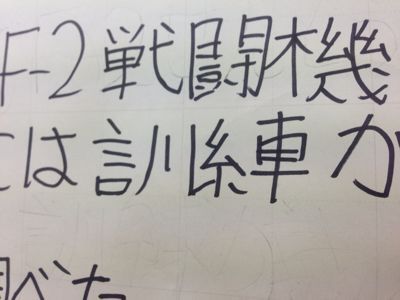 F-2戦闘機
には訓糸車か
べた